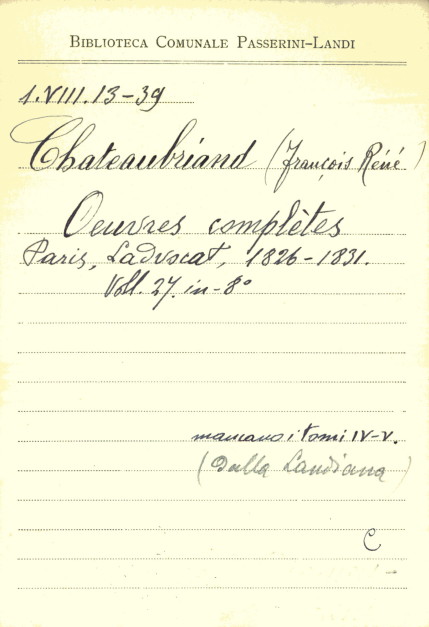 BIBLIOTECA COMUNALE PASSERINI-LANDI
1.VIII.13-39
Chateaubriand (François Réné)
Oeuvres complètes
Paris, Ladvocat, 1826-1831.
Voll. 27. in-8°
mancano i tomi IV-V.
(Dalla Landiana)
C